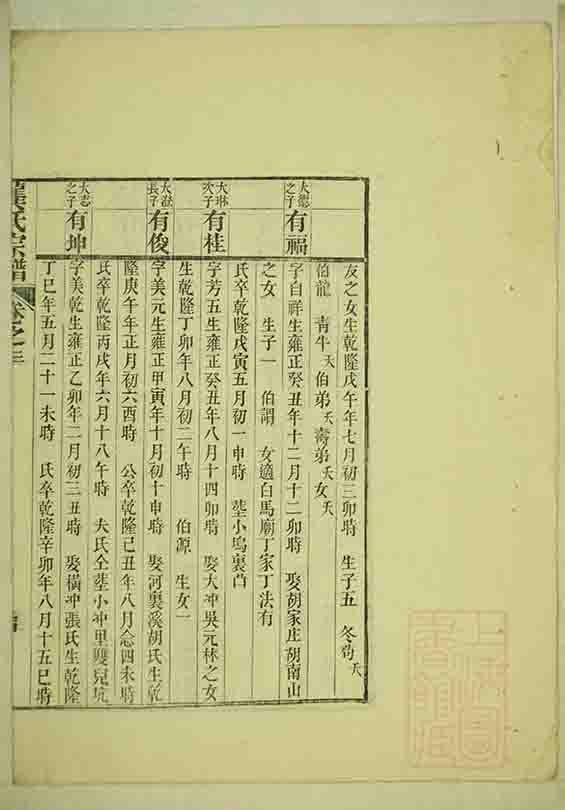 友之女生乾隆戊午年七月初三卯時 生子五 冬苟夭
伯龍 靑牛夭 伯弟夭 壽弟夭 女夭
大聰之子
有福
字自祥生雍正癸丑年十二月十二卯時 娶胡家庄胡南山
之女 生子一 伯謂 女適白馬廟丁家丁法有
氏卒乾隆戊寅五月初一申時 塟小塢裏
大琳次子
有桂
字芳五生雍正癸丑年八月十四卯時 娶大冲吳元林之女
生乾隆丁卯年八月初二午時 伯源 生女一
長子
有俊
字美元生雍正甲寅年十月初十申時 娶河裏溪胡氏生乾
隆庚午年正月初六酉時 公卒乾隆己丑年八月念四未時
氏卒乾隆丙戌年六月十八午時 夫氏仝塟小冲里雙坑
大志之子
有坤
字美乾生雍正乙卯年二月初三丑時 娶橫冲張氏生乾隆
丁巳年五月二十一未時 氏卒乾隆辛卯年八月十五巳時
氏宗譜 卷之三
上海圖書館藏